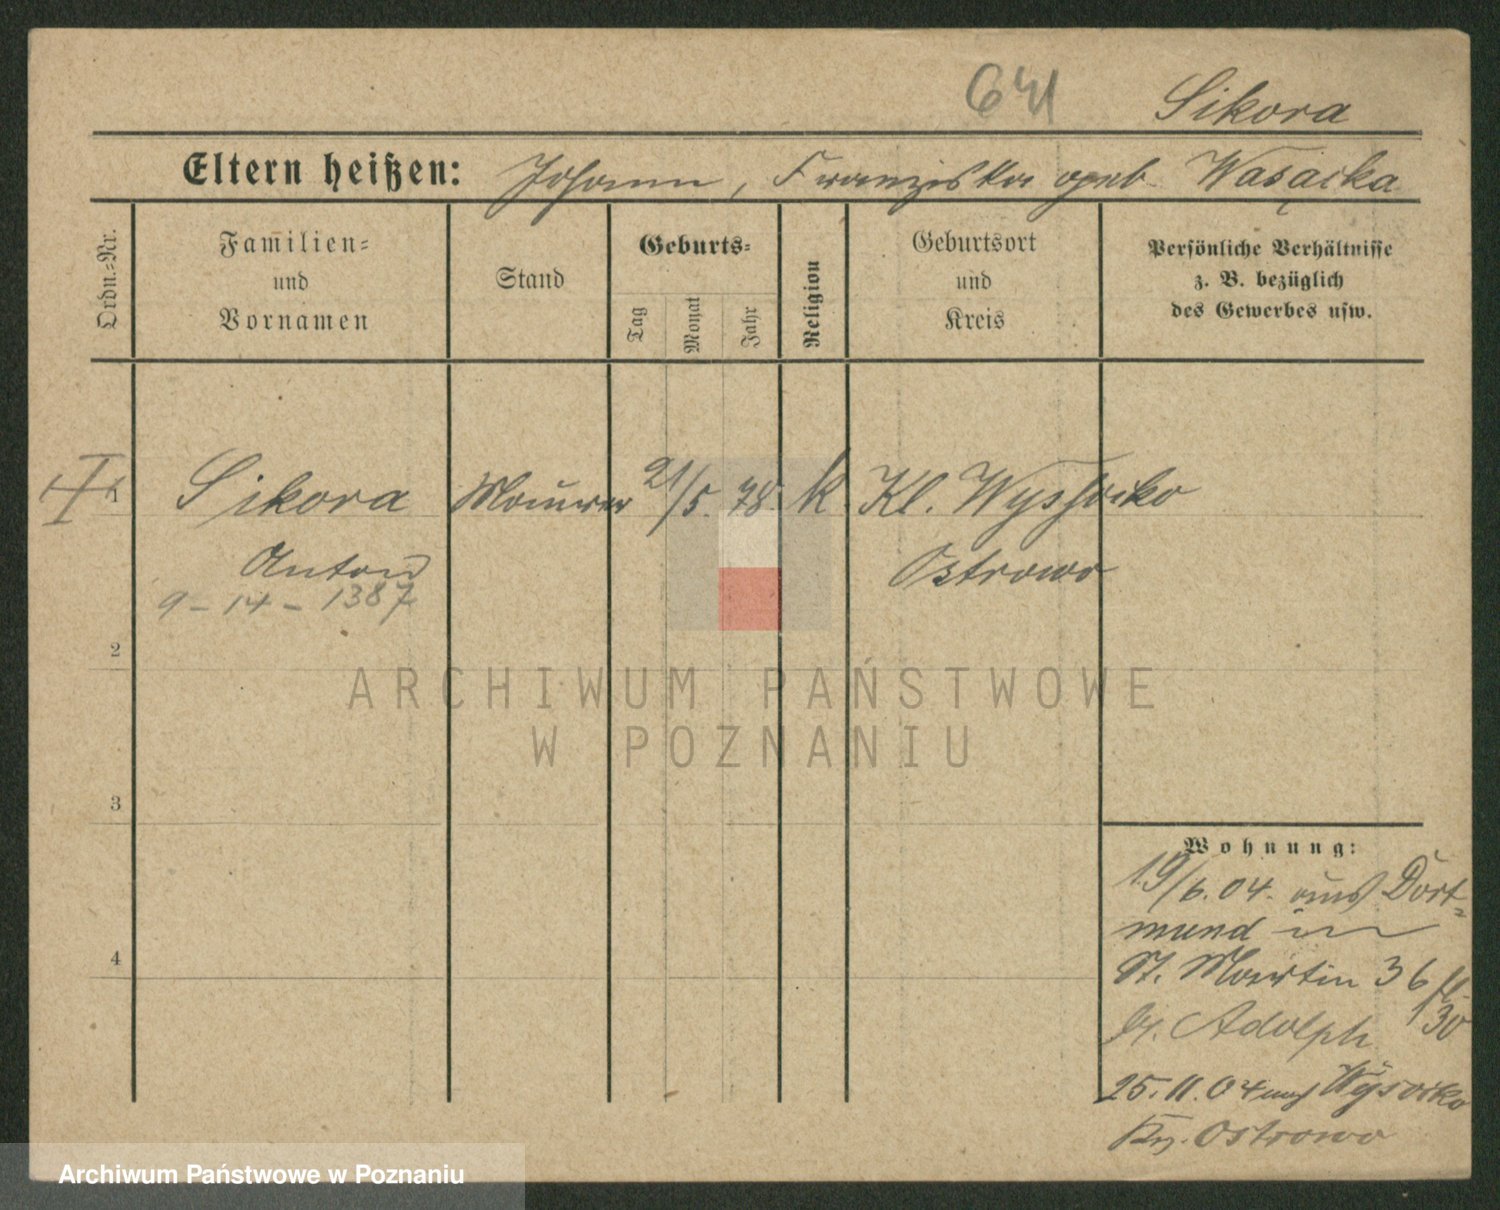 641 Sikora
Eltern heißen: Johann, Franziska geb Wasącka
Ordn.-Nr.
Familien-
und
Vornamen
Stand
Geburts-
Tag
Monat
Jahr
Religion
Geburtsort
und
Kreis
Persönliche Verhältnisse
z. B. bezüglich
des Gewerbes usw.
1 Sikora Maurer 21/5. 78. k. Kl. Wyssocko
Anton Ostrowo
9 - 14 - 1387
2
ARCHIWUM PAŃSTWOWE
W POZNANIU
3
Wohnung:
19/6.04. aus Dort-
mund in
St. Martin 36
b/. Adolph 1/30
4
25.11.04 nach Wysocko
Krs. Ostrowo
Archiwum Państwowe w Poznaniu